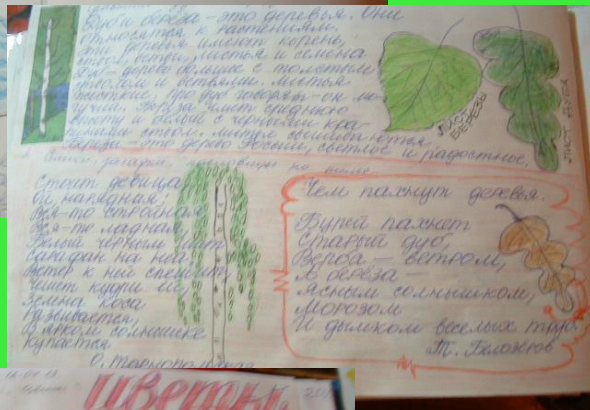 Дуб и берёза - это деревья. Они
относятся к растениям.
Эти деревья имеют корень,
ствол, ветви, листья и семена
Дуб - дерево большое с толстым
стволом и ветвями. Листья
жёсткие, про дуб говорят - он мо-
гучий. Берёза имеет среднюю
высоту и белый с чёрными кра-
пинами ствол.
Берёза - это дерево России, светлое и радостное.
ЛИСТ БЕРЁЗЫ
ЛИСТ ДУБА
Стоит девица
Ой нарядная:
Вся-то стройная
Вся-то ладная,
Белый чёрным шит
Сарафан на ней,
Ветер к ней спешит
Чешет кудри ей,
Зелена коса
Развивается,
В ярком солнышке
Купается
Чем пахнут деревья.
Бурей пахнет
Старый дуб,
Верба - ветром,
А берёза -
Ясным солнышком,
Морозом
И дымком весёлых труб.
Т. Белозёров
ЦВЕТЫ.